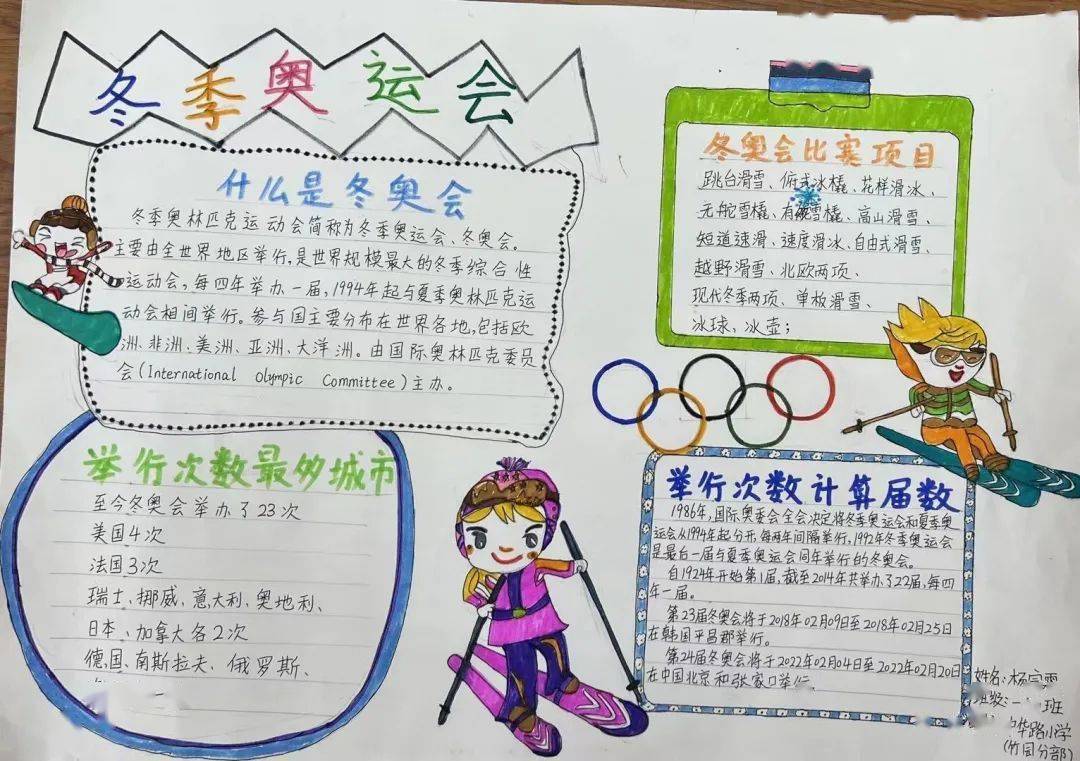 冬季奥运会
什么是冬奥会
冬季奥林匹克运动会简称为冬季奥运会、冬奥会。
主要由全世界地区举行,是世界规模最大的冬季综合性
运动会,每四年举办一届,1994年起与夏季奥林匹克运
动会相间举行。参与国主要分布在世界各地,包括欧
洲、非洲、美洲、亚洲、大洋洲。由国际奥林匹克委员
会(International Olympic Committee)主办。
冬奥会比赛项目
跳台滑雪、俯式冰橇、花样滑冰、
无舵雪橇、有舵雪橇、高山滑雪、
短道速滑、速度滑冰、自由式滑雪、
越野滑雪、北欧两项、
现代冬季两项、单板滑雪、
冰球、冰壶;
举行次数最多城市
至今冬奥会举办了23次
美国4次
法国3次
瑞士、挪威、意大利、奥地利、
日本、加拿大各2次
德国、南斯拉夫、俄罗斯、
举行次数计算届数
1986年,国际奥委会全会决定将冬季奥运会和夏季奥
运会从1994年起分开,每两年间隔举行,1992年冬季奥运会
是最后一届与夏季奥运会同年举行的冬奥会。
自1924年开始第1届,截至2014年共举办了22届,每四
年一届。
第23届冬奥会将于2018年02月09日至2018年02月25日
在韩国平昌郡举行。
第24届冬奥会将于2022年02月04日至2022年02月20日
在中国北京和张家口举行.
姓名:杨
班
华路小学
(竹园分部)